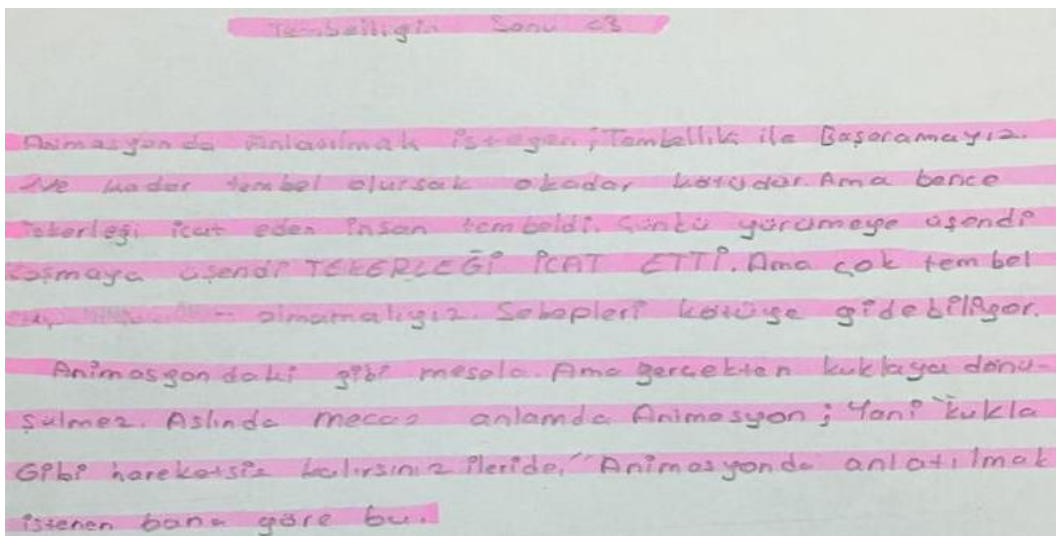 Tembelligin Sonu <3
Animasyonda Anlaşılmak istegen; Tembellik ile Başaramayız.
Ne kadar tembel olursak okadar kötüdür. Ama bence
Tekerleği icat eden insan tembeldi. Çünkü yürümeye üşendi
koşmaya üşendi TEKERLEĞİ İCAT ETTİ. Ama çok tembel
olmamalıyız. Sebepleri kötüye gidebiliyor.
Animasyondaki gibi mesela. Ama gerçekten kuklaya dönü-
şülmez. Aslında mecaz anlamda Animasyon; Yani "kukla
Gibi hareketsiz kalırsınız ileride." Animasyonda anlatılmak
istenen bana göre bu.